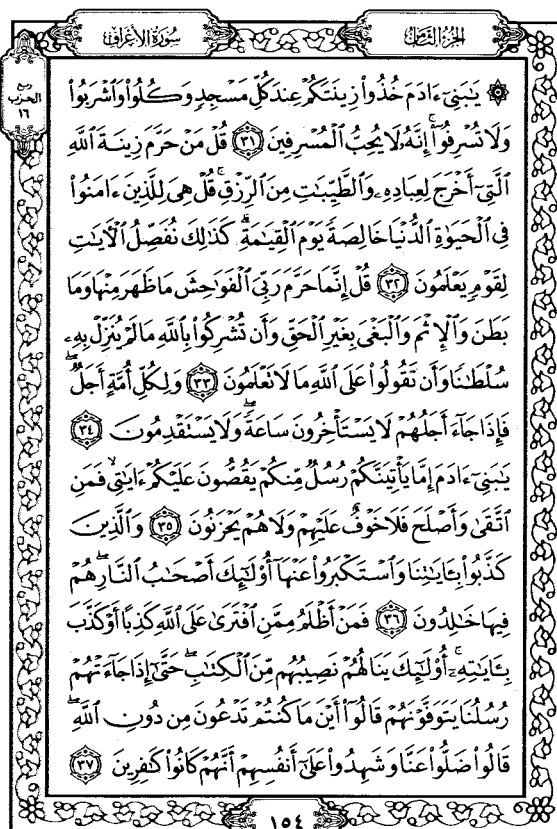 الجزء الثامن
سورة الأعراف
ربع
الحزب
١٦
۞ يَٰبَنِىٓ ءَادَمَ خُذُوا۟ زِينَتَكُمْ عِندَ كُلِّ مَسْجِدٍ وَكُلُوا۟ وَٱشْرَبُوا۟
وَلَا تُسْرِفُوٓا۟ ۚ إِنَّهُۥ لَا يُحِبُّ ٱلْمُسْرِفِينَ ٣١ قُلْ مَنْ حَرَّمَ زِينَةَ ٱللَّهِ
ٱلَّتِىٓ أَخْرَجَ لِعِبَادِهِۦ وَٱلطَّيِّبَٰتِ مِنَ ٱلرِّزْقِ ۚ قُلْ هِىَ لِلَّذِينَ ءَامَنُوا۟
فِى ٱلْحَيَوٰةِ ٱلدُّنْيَا خَالِصَةً يَوْمَ ٱلْقِيَٰمَةِ ۗ كَذَٰلِكَ نُفَصِّلُ ٱلْـَٔايَٰتِ
لِقَوْمٍ يَعْلَمُونَ ٣٢ قُلْ إِنَّمَا حَرَّمَ رَبِّىَ ٱلْفَوَٰحِشَ مَا ظَهَرَ مِنْهَا وَمَا
بَطَنَ وَٱلْإِثْمَ وَٱلْبَغْىَ بِغَيْرِ ٱلْحَقِّ وَأَن تُشْرِكُوا۟ بِٱللَّهِ مَا لَمْ يُنَزِّلْ بِهِۦ
سُلْطَٰنًا وَأَن تَقُولُوا۟ عَلَى ٱللَّهِ مَا لَا تَعْلَمُونَ ٣٣ وَلِكُلِّ أُمَّةٍ أَجَلٌ ۖ
فَإِذَا جَآءَ أَجَلُهُمْ لَا يَسْتَأْخِرُونَ سَاعَةً ۖ وَلَا يَسْتَقْدِمُونَ ٣٤
يَٰبَنِىٓ ءَادَمَ إِمَّا يَأْتِيَنَّكُمْ رُسُلٌ مِّنكُمْ يَقُصُّونَ عَلَيْكُمْ ءَايَٰتِى ۙ فَمَنِ
ٱتَّقَىٰ وَأَصْلَحَ فَلَا خَوْفٌ عَلَيْهِمْ وَلَا هُمْ يَحْزَنُونَ ٣٥ وَٱلَّذِينَ
كَذَّبُوا۟ بِـَٔايَٰتِنَا وَٱسْتَكْبَرُوا۟ عَنْهَآ أُو۟لَٰٓئِكَ أَصْحَٰبُ ٱلنَّارِ ۖ هُمْ
فِيهَا خَٰلِدُونَ ٣٦ فَمَنْ أَظْلَمُ مِمَّنِ ٱفْتَرَىٰ عَلَى ٱللَّهِ كَذِبًا أَوْ كَذَّبَ
بِـَٔايَٰتِهِۦٓ ۚ أُو۟لَٰٓئِكَ يَنَالُهُمْ نَصِيبُهُم مِّنَ ٱلْكِتَٰبِ ۖ حَتَّىٰٓ إِذَا جَآءَتْهُمْ
رُسُلُنَا يَتَوَفَّوْنَهُمْ قَالُوٓا۟ أَيْنَ مَا كُنتُمْ تَدْعُونَ مِن دُونِ ٱللَّهِ ۖ
قَالُوا۟ ضَلُّوا۟ عَنَّا وَشَهِدُوا۟ عَلَىٰٓ أَنفُسِهِمْ أَنَّهُمْ كَانُوا۟ كَٰفِرِينَ ٣٧
١٥٤